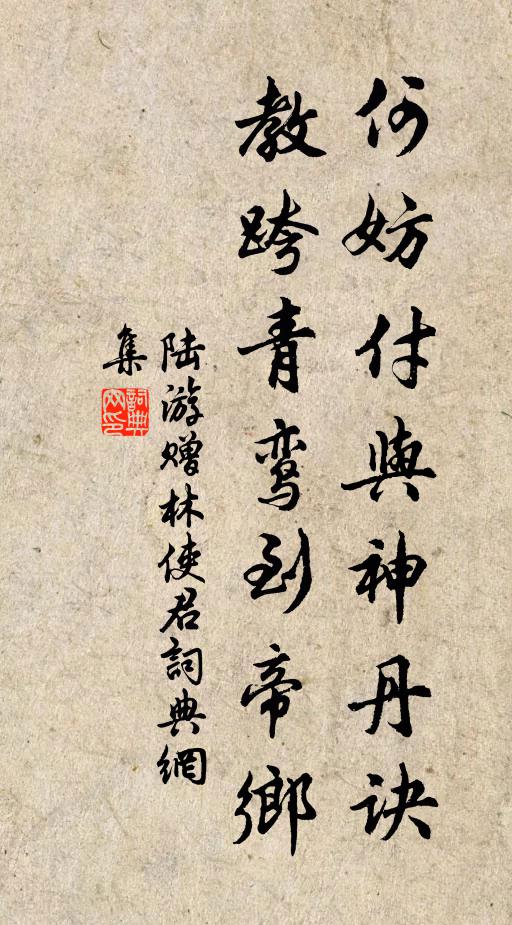 何妨付與神丹诀
教跨青鸾到帝鄉
陆游赠林使君詞典網
集
詞典
网印